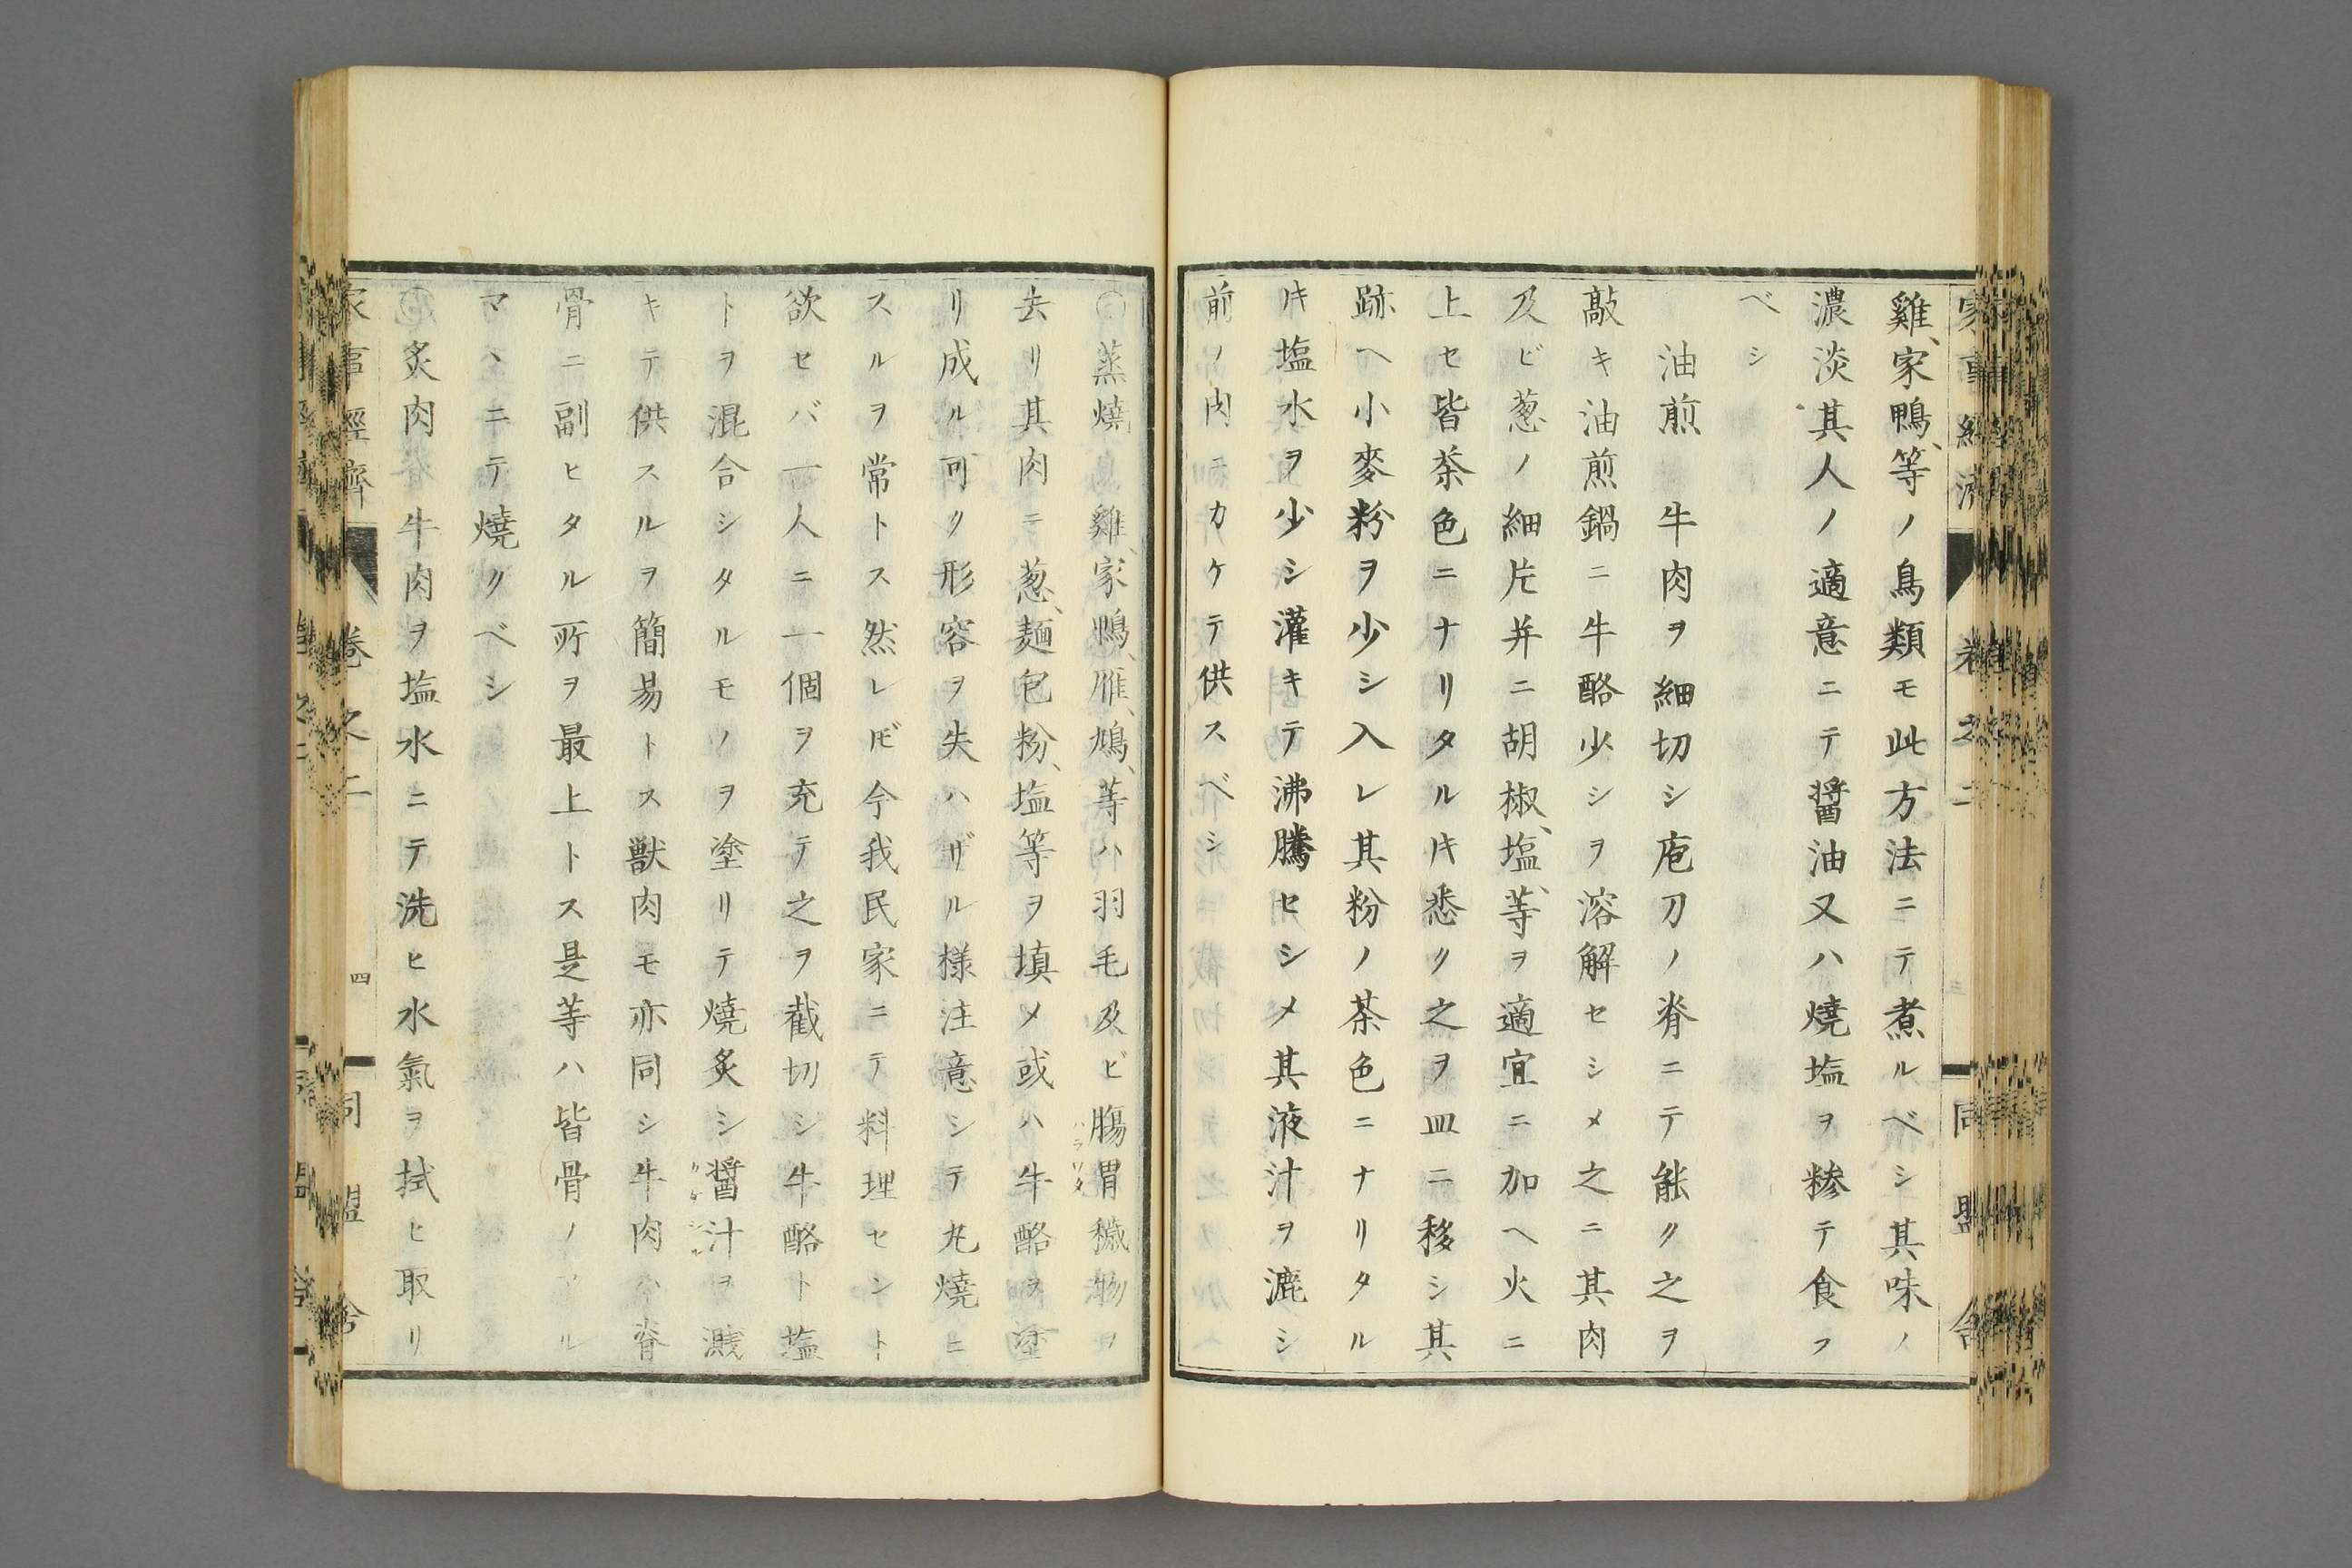 雞、家鴨、等ノ鳥類モ此方法ニテ煮ルベシ其味ノ
濃淡其人ノ適意ニテ醤油又ハ燒塩ヲ糝テ食フ
ベシ
油煎 牛肉ヲ細切シ庖刀ノ脊ニテ能ク之ヲ
敲キ油煎鍋ニ牛酪少シヲ溶解セシメ之ニ其肉
及ビ葱ノ細片并ニ胡椒、塩、等ヲ適宜ニ加ヘ火ニ
上セ皆茶色ニナリタル𪜈悉ク之ヲ皿ニ移シ其
跡ヘ小麥粉ヲ少シ入レ其粉ノ茶色ニナリタル
𪜈塩水ヲ少シ灌キテ沸騰セシメ其液汁ヲ漉シ
前ノ肉ニカケテ供スベシ
〇蒸燒 雞、家鴨、雁、鳩、等ハ羽毛及ビ膓胃穢物ヲ
ハラワタ
去リ其肉ニ葱、麺包粉、塩等ヲ填メ或ハ牛酪ヲ塗
リ成ル可ク形容ヲ失ハザル様注意シテ丸燒ニ
スルヲ常トス然レ𪜈今我民家ニテ料理セント
欲セバ一人ニ一個ヲ充テ之ヲ截切シ牛酪ト塩
トヲ混合シタルモノヲ塗リテ燒炙シ醤汁ヲ濺
キテ供スルヲ簡易トス獣肉モ亦同シ牛肉ハ脊
骨ニ副ヒタル所ヲ最上トス是等ハ皆骨ノ
マヽニテ燒クベシ
炙肉 牛肉ヲ塩水ニテ洗ヒ水氣ヲ拭ヒ取リ
家事經濟 卷之二 四 同盟舎